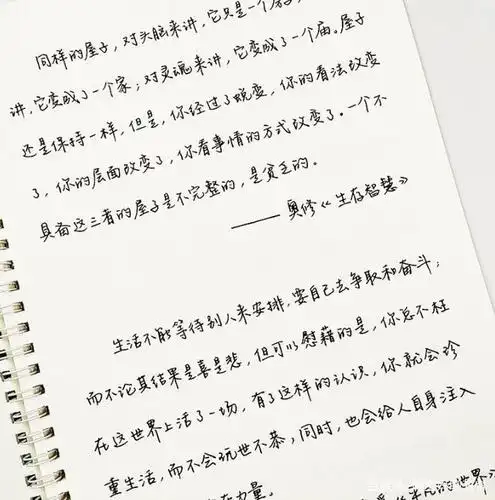 同样的屋子，对头脑来讲，它只是一个房子，
讲，它变成了一个家；对灵魂来讲，它变成了一个庙。屋子
还是保持一样，但是，你经过了蜕变，你的看法改变
了，你的层面改变了，你看事情的方式改变了。一个不
具备这三者的屋子是不完整的，是贫乏的。
—— 奥修《生存智慧》
生活不能等待别人来安排，要自己去争取和奋斗；
而不论其结果是喜是悲，但可以慰藉的是，你总不枉
在这世界上活了一场，有了这样的认识，你就会珍
重生活，而不会玩世不恭，同时，也会给人自身注入
力量。
的世界